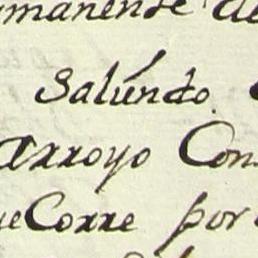 manense de
Salúndo.
arroyo Con
ue Corre por